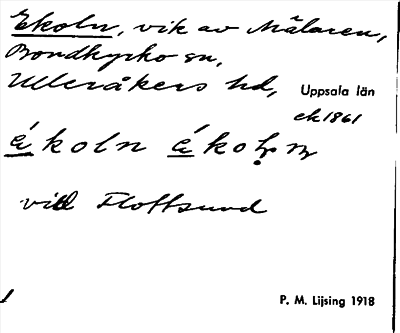 Ekoln, vik av Mälaren,
Bondkyrko sn,
Ulleråkers hd, Uppsala län
ek 1861
ékoln éko
vid Flottsund
P. M. Lijsing 1918